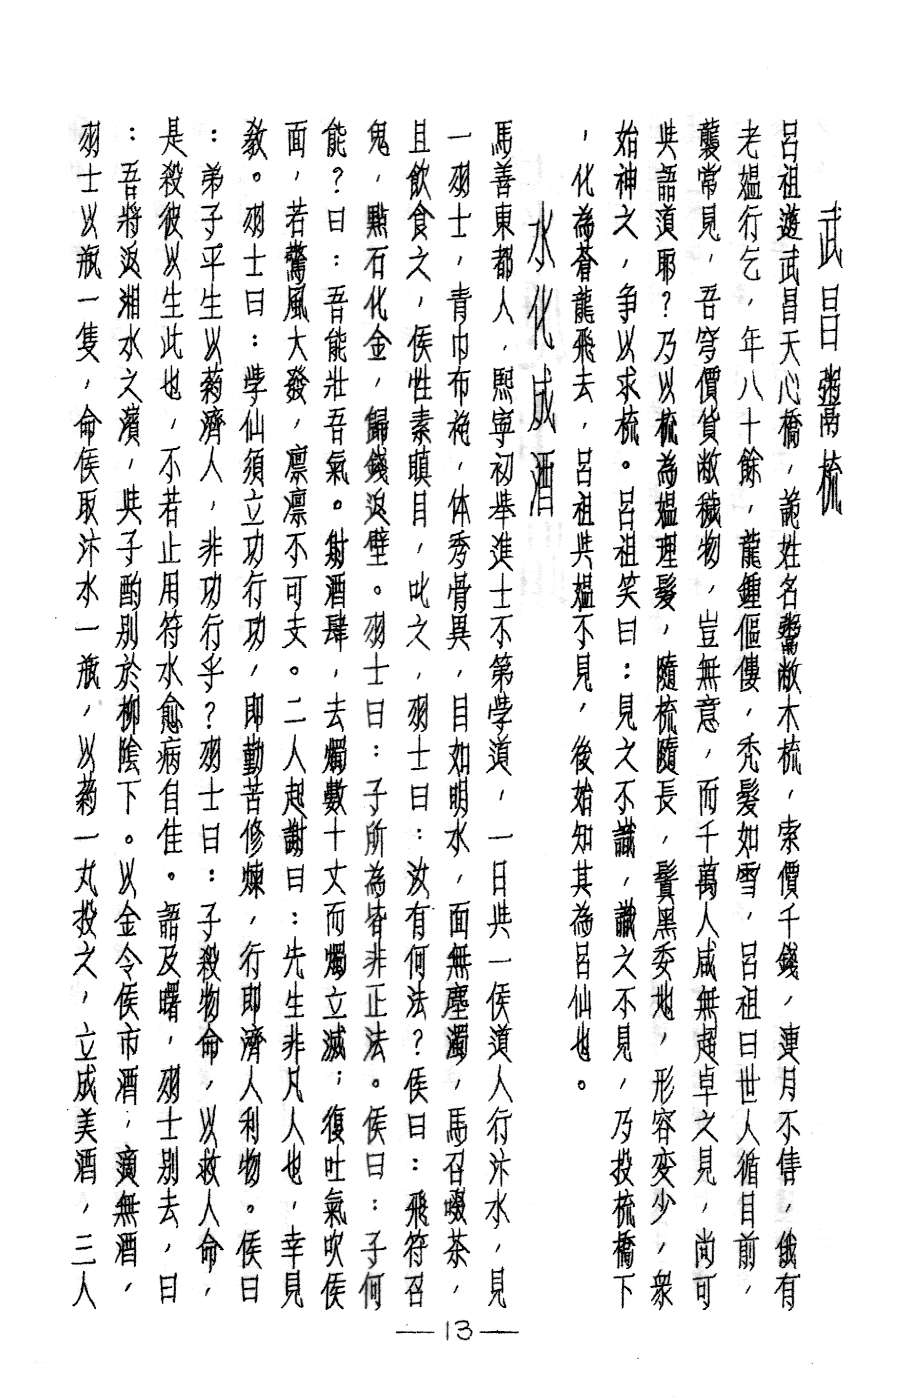 武昌鬻梳
呂祖遊武昌天心橋，詭姓名鬻敝木梳，索價千錢，連月不售，俄有
老媼行乞，年八十餘，龍鍾傴僂，禿髮如雪，呂祖曰世人循目前，
襲常見，吾穹價貨敝穢物，豈無意，而千萬人咸無超卓之見，尚可
共語道耶？乃以梳為媼理髮，隨梳隨長，鬢黑委地，形容変少，衆
始神之，争以求梳。呂祖笑曰：見之不識，識之不見，乃投梳橋下
，化為蒼龍飛去，呂祖共媼不見，後始知其為呂仙也。
水化成酒
馬善東都人，熙寧初举進士不第学道，一日共一侯道人行汴水，見
一羽士，青巾布袍，体秀骨異，目如明水，面無塵濁，馬召啜茶，
且飲食之，侯性素瞋目，叱之，羽士曰：汝有何法？侯曰：飛符召
鬼，點石化金，歸錢返壁。羽士曰：子所為皆非正法。侯曰：子何
能？曰：吾能壯吾氣。射酒肆，去燭數十丈而燭立滅；復吐氣吹侯
面，若驚風大發，凛凛不可支。二人起謝曰：先生非凡人也，幸見
教。羽士曰：学仙須立功行功，即勤苦修煉，行即濟人利物。侯曰
：弟子平生以葯濟人，非功行乎？羽士曰：子殺物命，以救人命，
是殺彼以生此也，不若止用符水愈病自佳。語及曙，羽士別去，曰
：吾將返湘水之濱，共子酌別於柳陰下。以金令侯市酒，適無酒，
羽士以瓶一隻，命侯取汴水一瓶，以葯一丸投之，立成美酒，三人
—13—